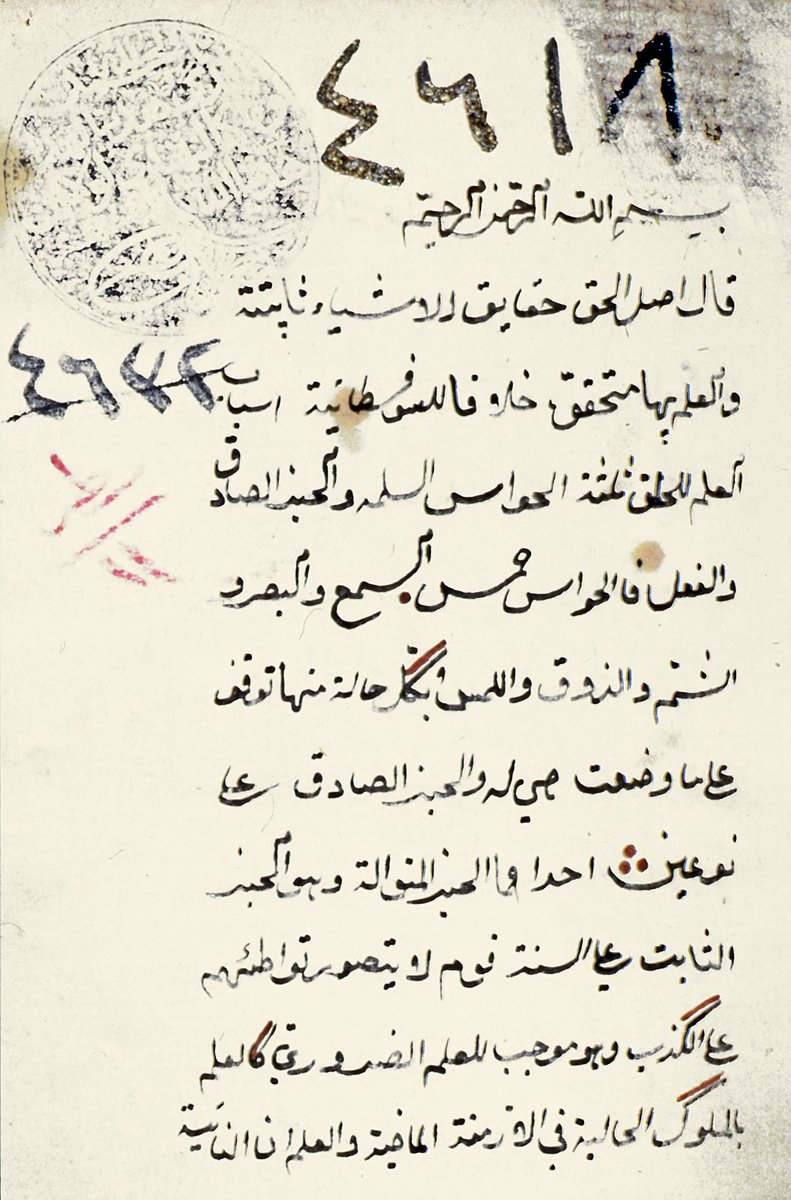 ٤٦١٨
بسم الله الرحمن الرحيم
قال اصل الحق حقايق الاشياء ثابتة
٤٦٣٢
والعلم بها متحقق خلافا للسوفسطائية اسباب
العلم للخلق ثلثة الحواس السلمه والخبر الصادق
والفعل فالحواس خمس السمع والبصر و
الشم والذوق واللمس وبكل حالة منها توقف
على ما وضعت هي له والخبر الصادق على
نوعين احدا هما الخبر المتوالة وهو الخبر
الثابت على السنة قوم لا يتصور تواطئهم
على الكذب وهو موجب للعلم الضروري كالعلم
بالملوك الخالية في الازمنة الماضية والعلم ان النائية